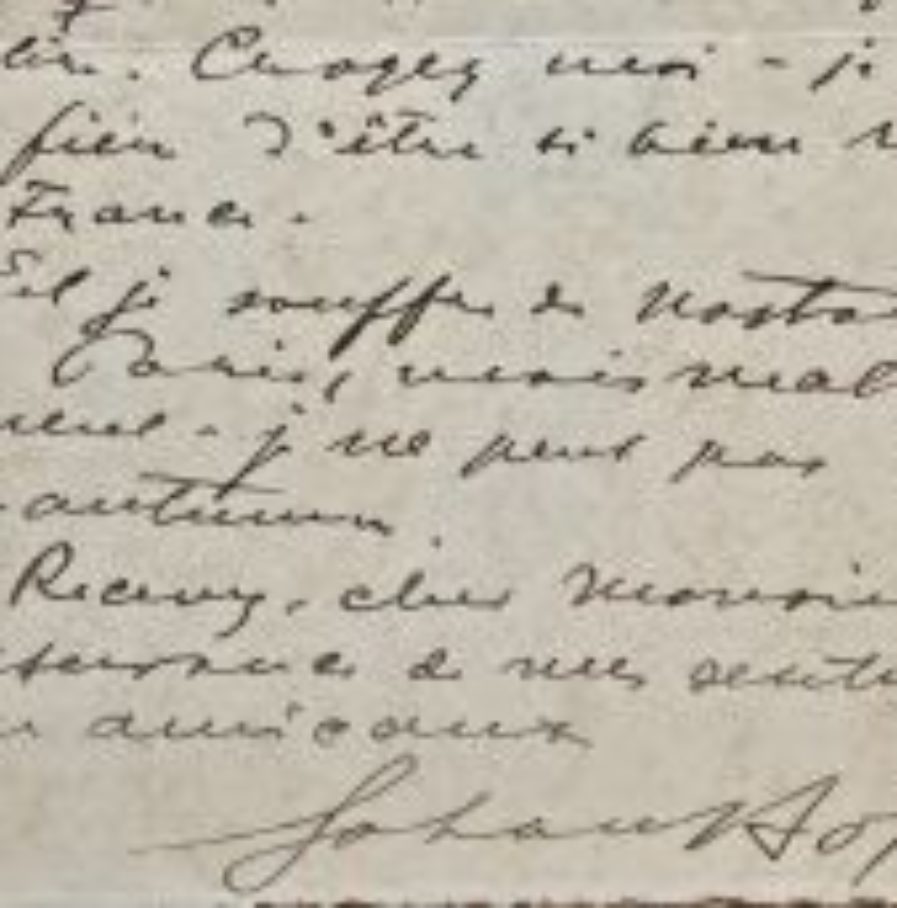 Croyez moi - je
fier d'être si bien
France.
je souffre de Nosta
Paris, mais mal
ment - je ne peut pas
automn
Recevez, cher Monsie
ssurance de mes senti
amicaux
Johan Bo